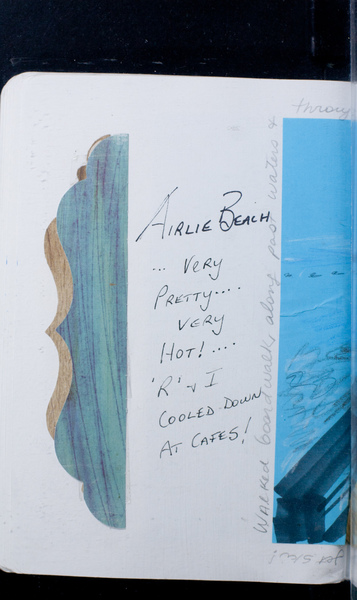 AIRLIE BEACH
... VERY
PRETTY....
VERY
HOT!....
'R' + I
COOLED DOWN
AT CAFES!
Walked boardwalk along past waters &
throu